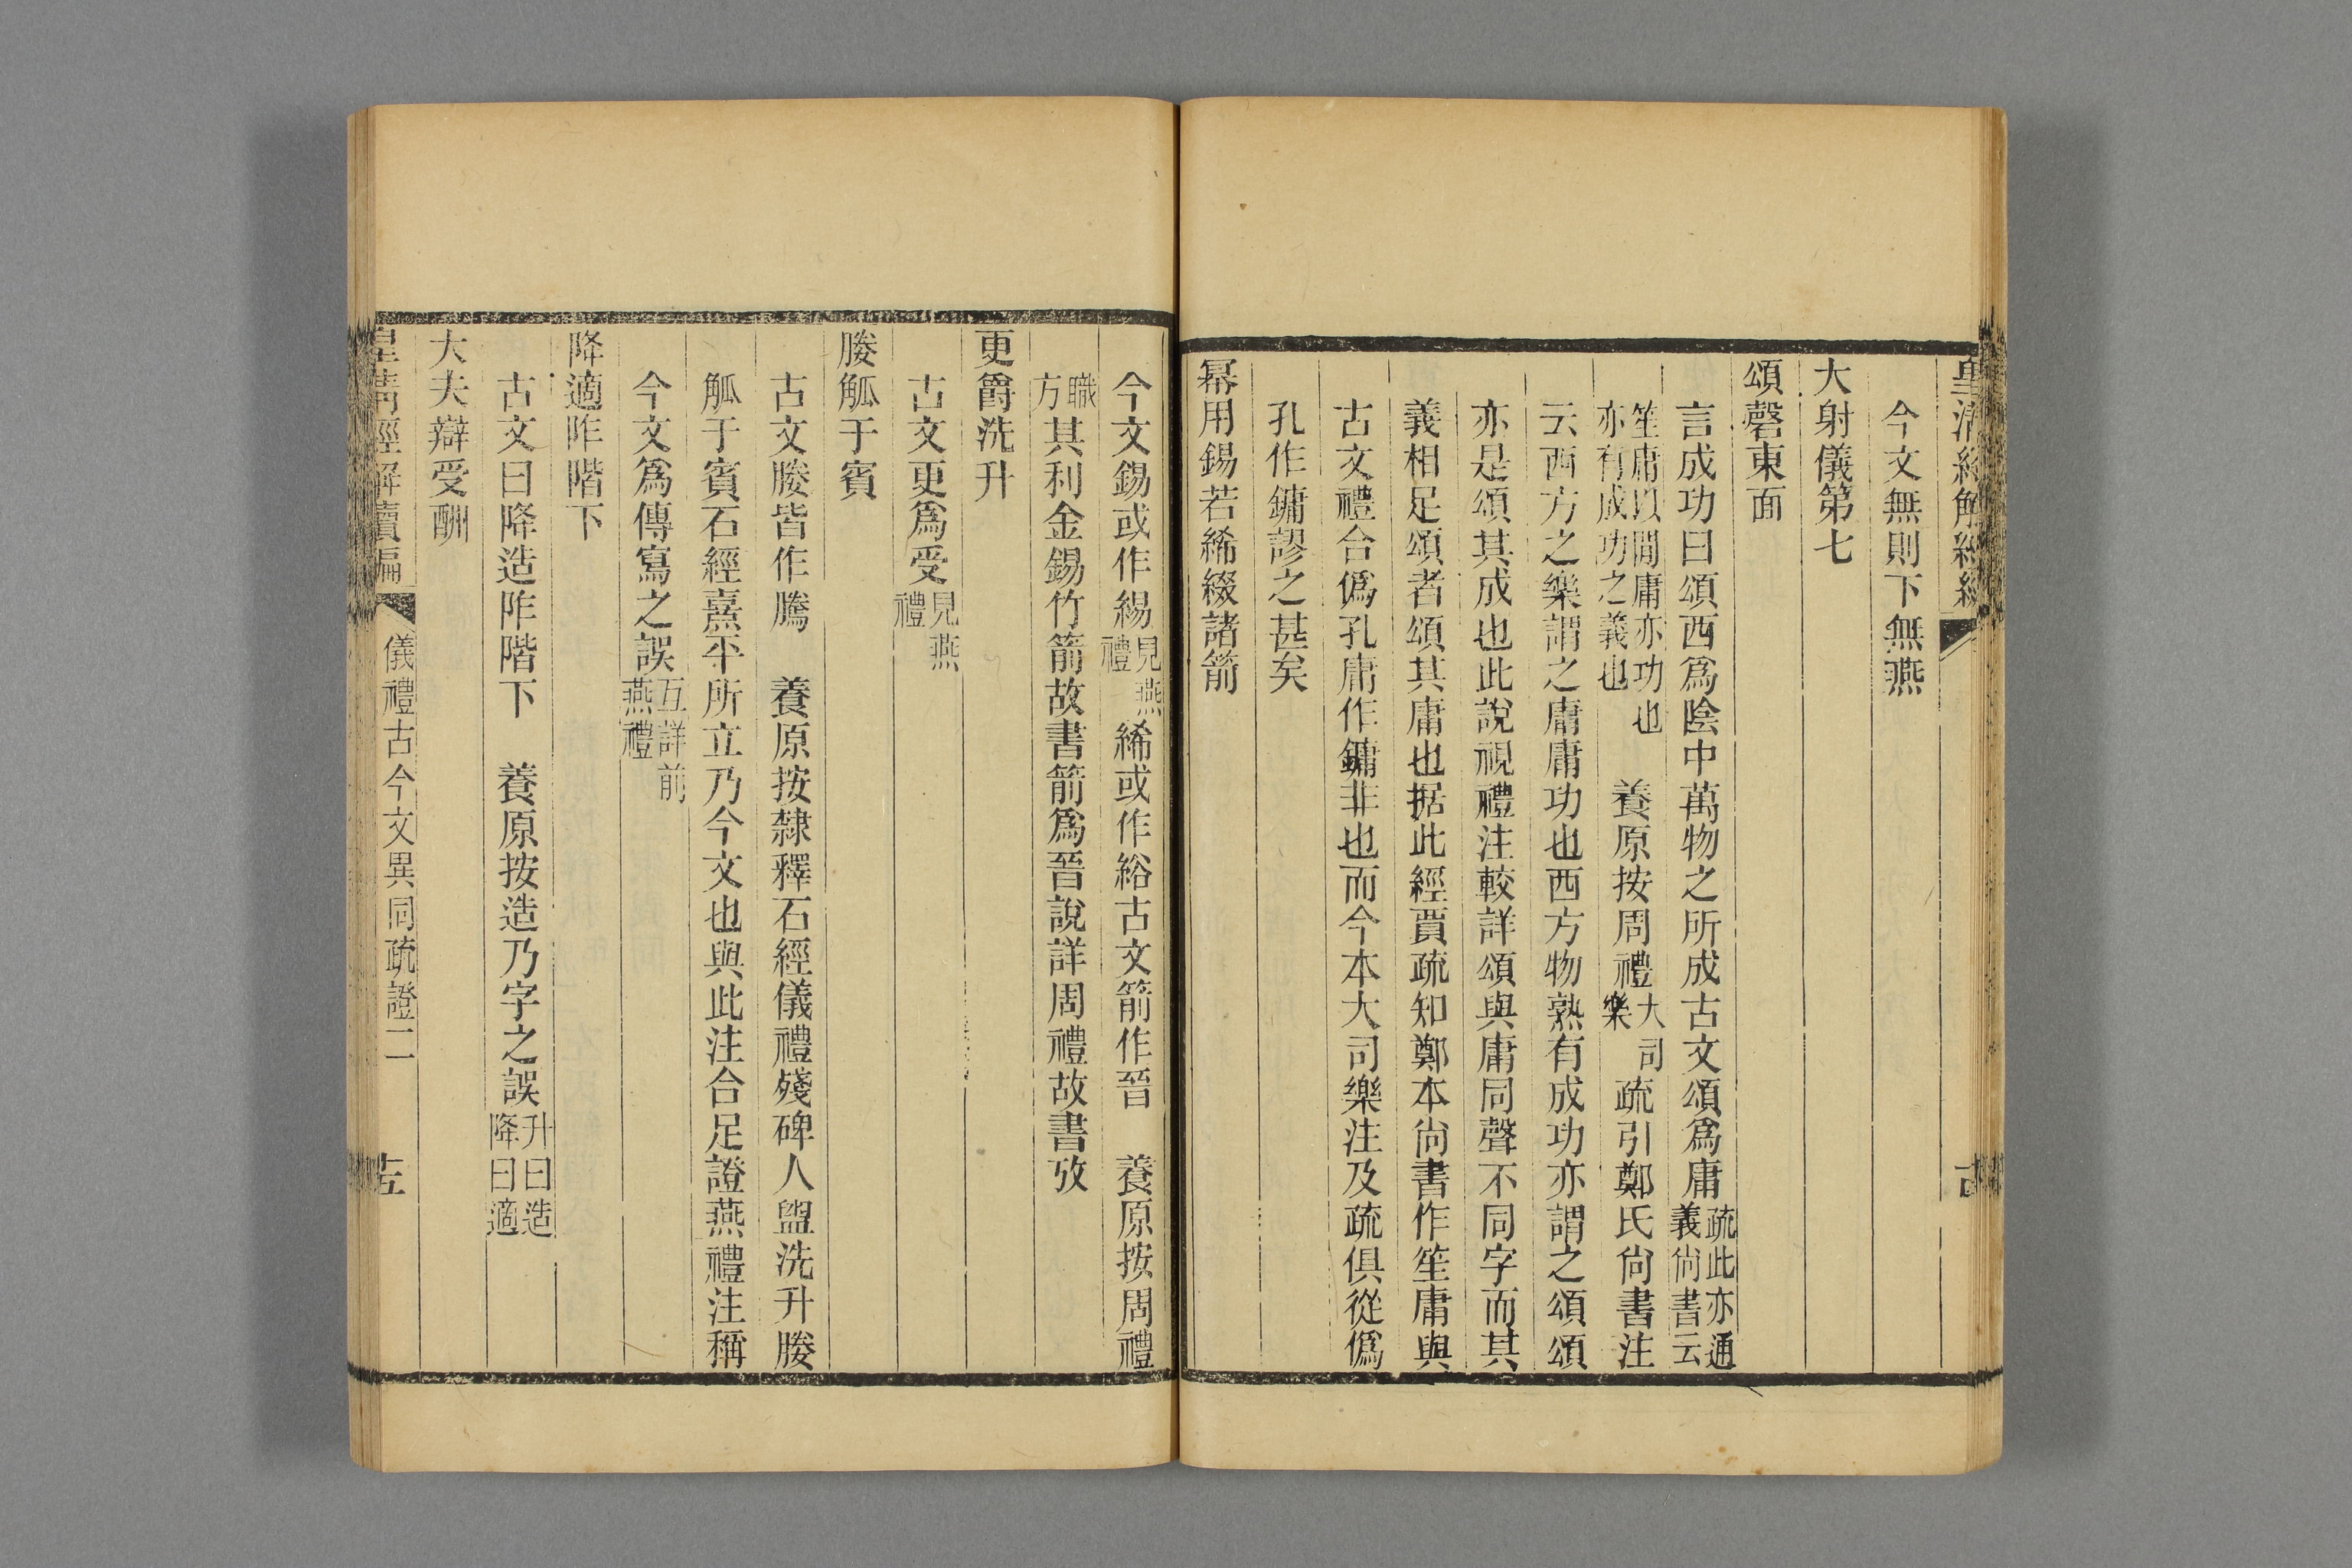 皇清經解續編
今文無則下無燕
大射儀第七
頌磬東面
言成功曰頌西爲陰中萬物之所成古文頌爲庸疏此亦通義尙書云
笙庸以閒庸亦功也亦有成功之義也　養原按周禮大司樂疏引鄭氏尙書注
云西方之樂謂之庸庸功也西方物熟有成功亦謂之頌頌
亦是頌其成也此說視禮注較詳頌與庸同聲不同字而其
義相足頌者頌其庸也据此經賈疏知鄭本尙書作笙庸與
古文禮合僞孔庸作鏞非也而今本大司樂注及疏俱從僞
孔作鏞謬之甚矣
冪用錫若絺綴諸箭
今文錫或作緆見燕禮絺或作綌古文箭作晉　養原按周禮
職方其利金錫竹箭故書箭爲晉說詳周禮故書攷
更爵洗升
古文更爲受見燕禮
媵觚于賓
古文媵皆作騰　養原按隸釋石經儀禮殘碑人盥洗升媵
觚于賓石經熹平所立乃今文也與此注合足證燕禮注稱
今文爲傳寫之誤互詳前燕禮
降適阼階下
古文曰降造阼階下　養原按造乃字之誤升曰造降曰適
大夫辯受酬
皇清經解續編　儀禮古今文異同疏證二　十五